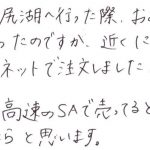 尻湖へ行った際、お
ったのですが、近くに
ネットで注文しました
高速のSAで売ってると
らと思います。